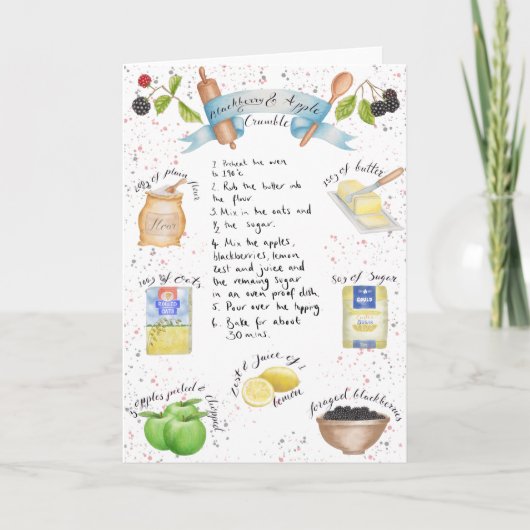 Blackberry & Apple
Crumble
1. Preheat the oven
to 190°c
2. Rub the butter into
the flour
3. Mix in the oats and
½ the sugar.
4. Mix the apples,
blackberries, lemon
zest and juice and
the remaing sugar
in an oven proof dish.
5. Pour over the topping
6. Bake for about
30 mins.
of plain flour
Flour
of butter
100g of Oats
ROLLED
OATS
80g of Sugar
GOULD
Zest & Juice of 1
lemon
3 apples peeled & chopped
foraged blackberries